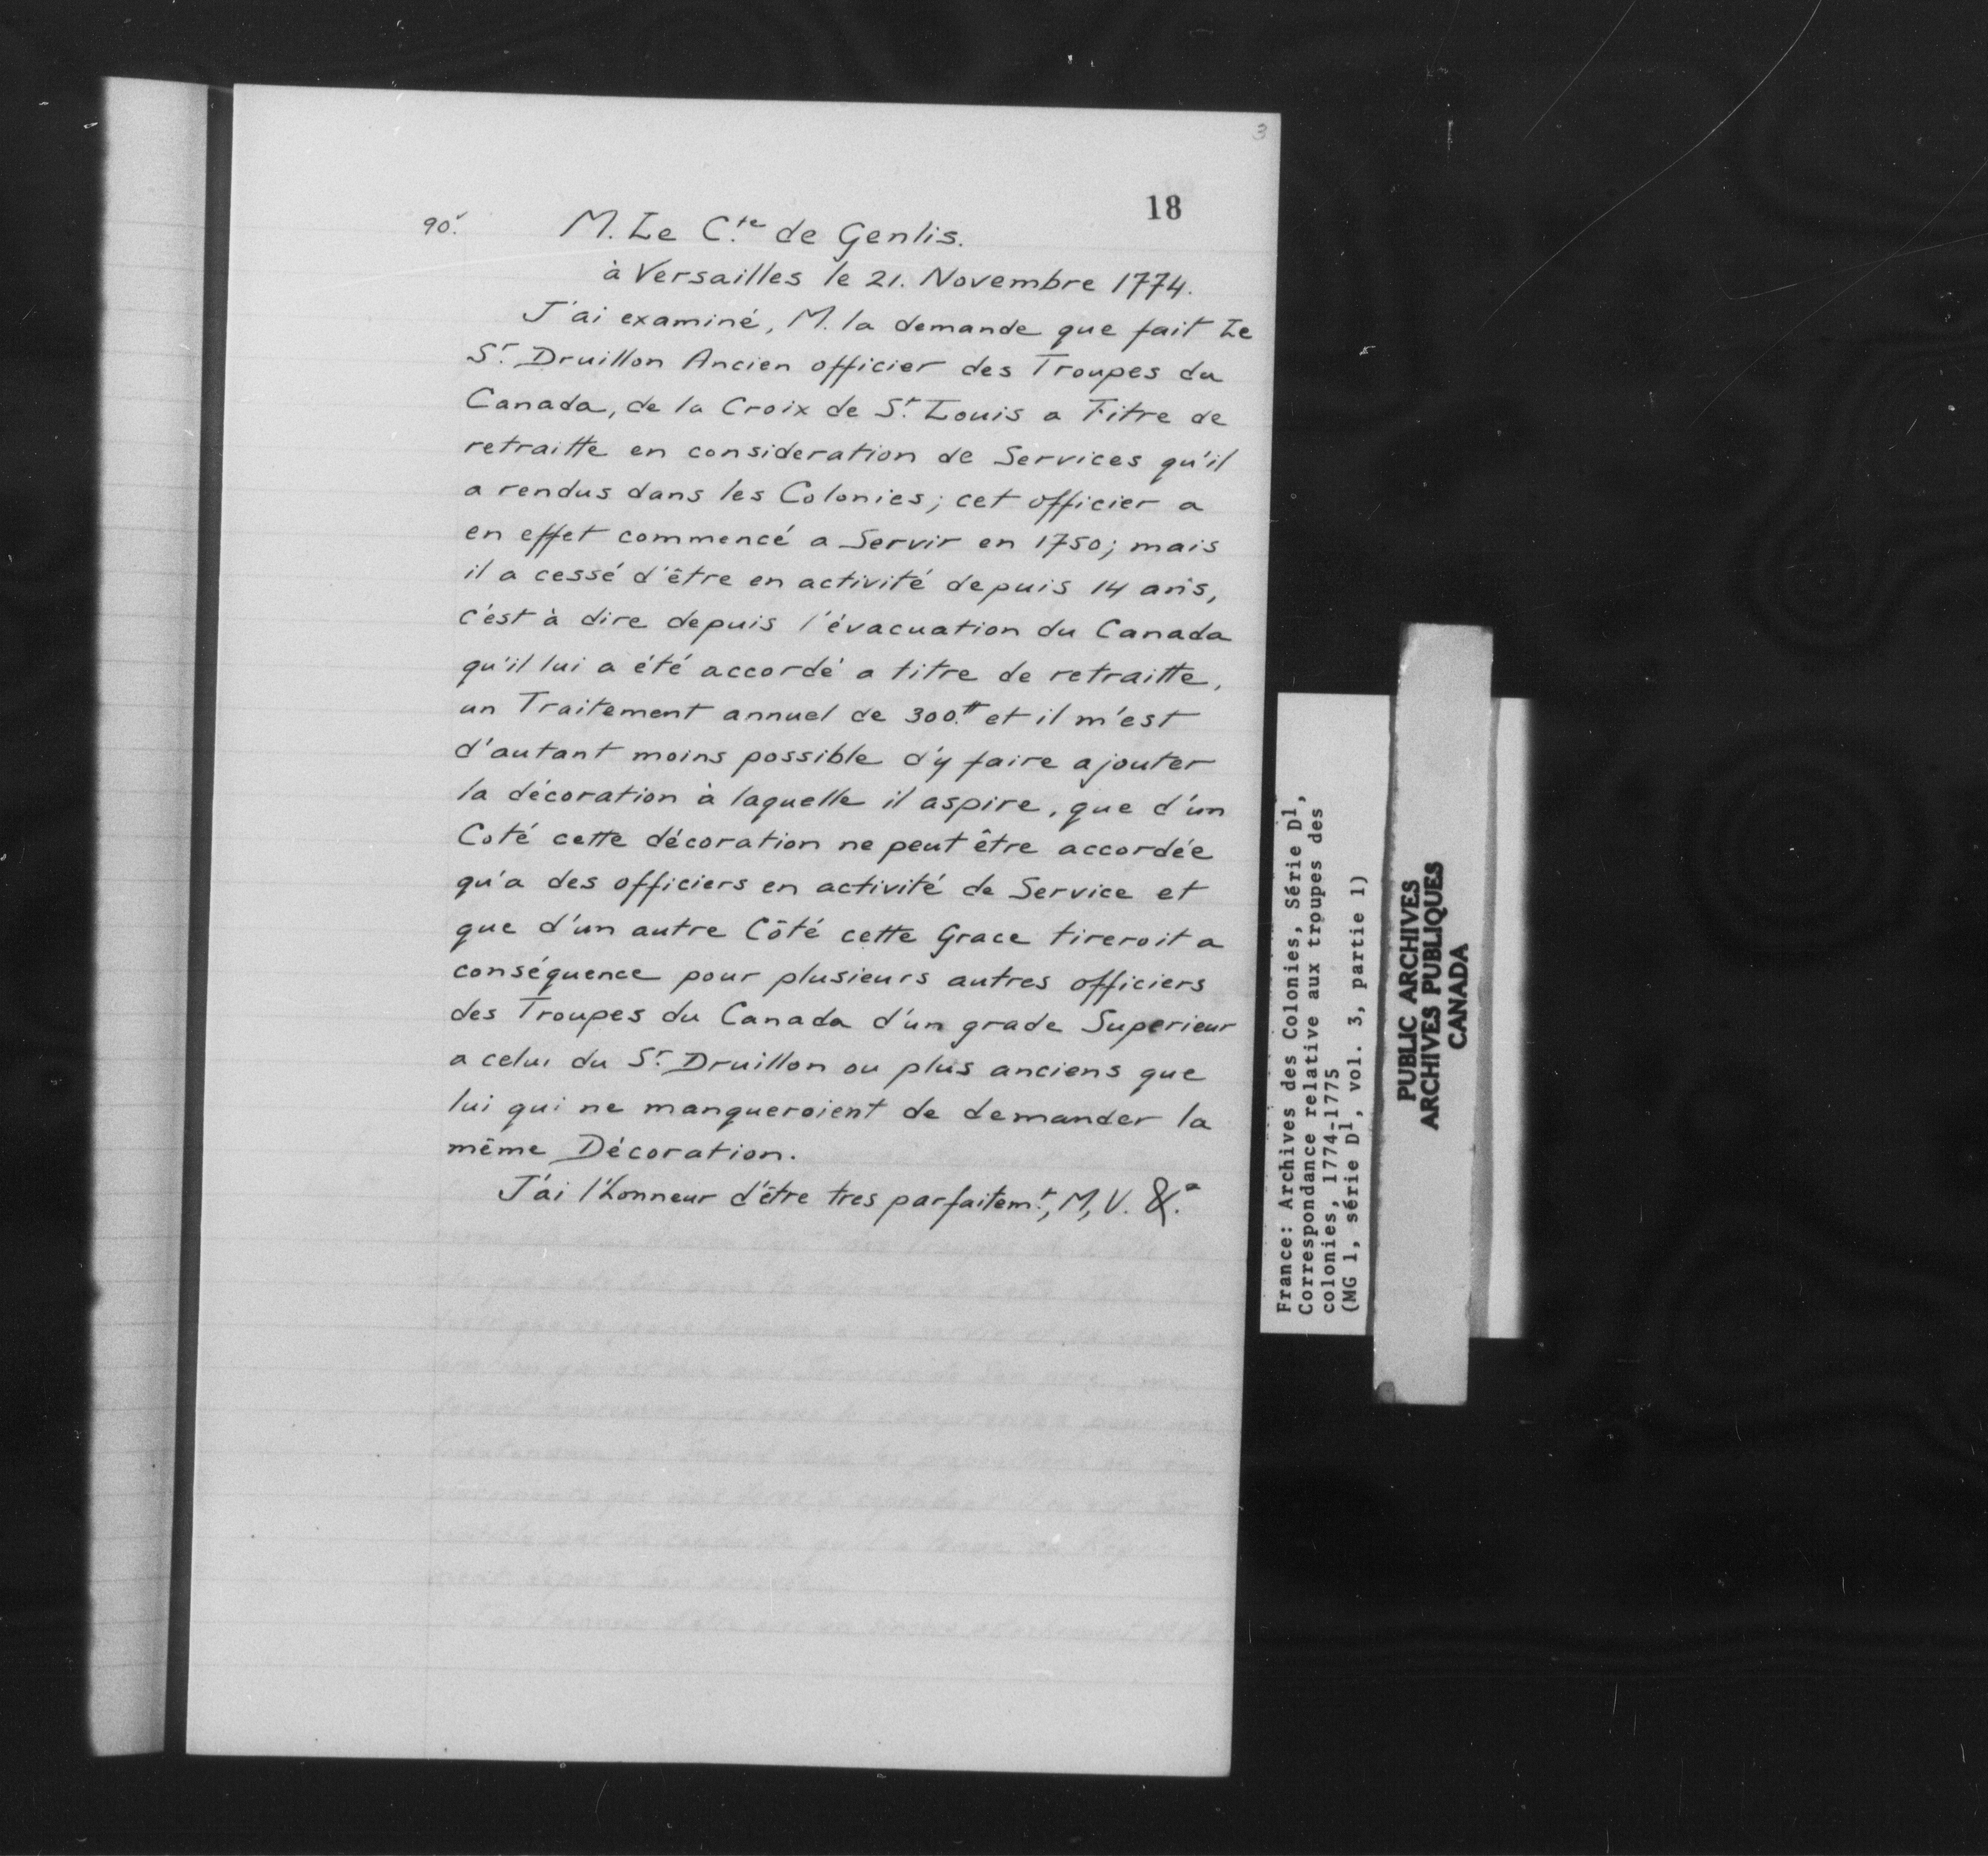 3
18
90.
M. Le C.te de Genlis.
à Versailles le 21. Novembre 1774.
J'ai examiné, M. la demande que fait Le
Sr. Druillon Ancien officier des Troupes du
Canada, de la Croix de St. Louis a Titre de
retraitte en consideration de Services qu'il
a rendus dans les Colonies; cet officier a
en effet commencé a Servir en 1750; mais
il a cessé d'être en activité depuis 14 ans,
c'est à dire depuis l'évacuation du Canada
qu'il lui a été accordé a titre de retraitte,
un Traitement annuel de 300.₶ et il m'est
d'autant moins possible d'y faire ajouter
la décoration à laquelle il aspire, que d'un
Coté cette décoration ne peut être accordée
qu'a des officiers en activité de Service et
que d'un autre Côté cette Grace tireroit a
conséquence pour plusieurs autres officiers
des Troupes du Canada d'un grade Superieur
a celui du Sr. Druillon ou plus anciens que
lui qui ne manqueroient de demander la
même Décoration.
J'ai l'honneur d'être tres parfaitem.t, M, V. &.a
France: Archives des Colonies, Série D1,
Correspondance relative aux troupes des
colonies, 1774-1775
(MG 1, série D1, vol. 3, partie 1)
PUBLIC ARCHIVES
ARCHIVES PUBLIQUES
CANADA